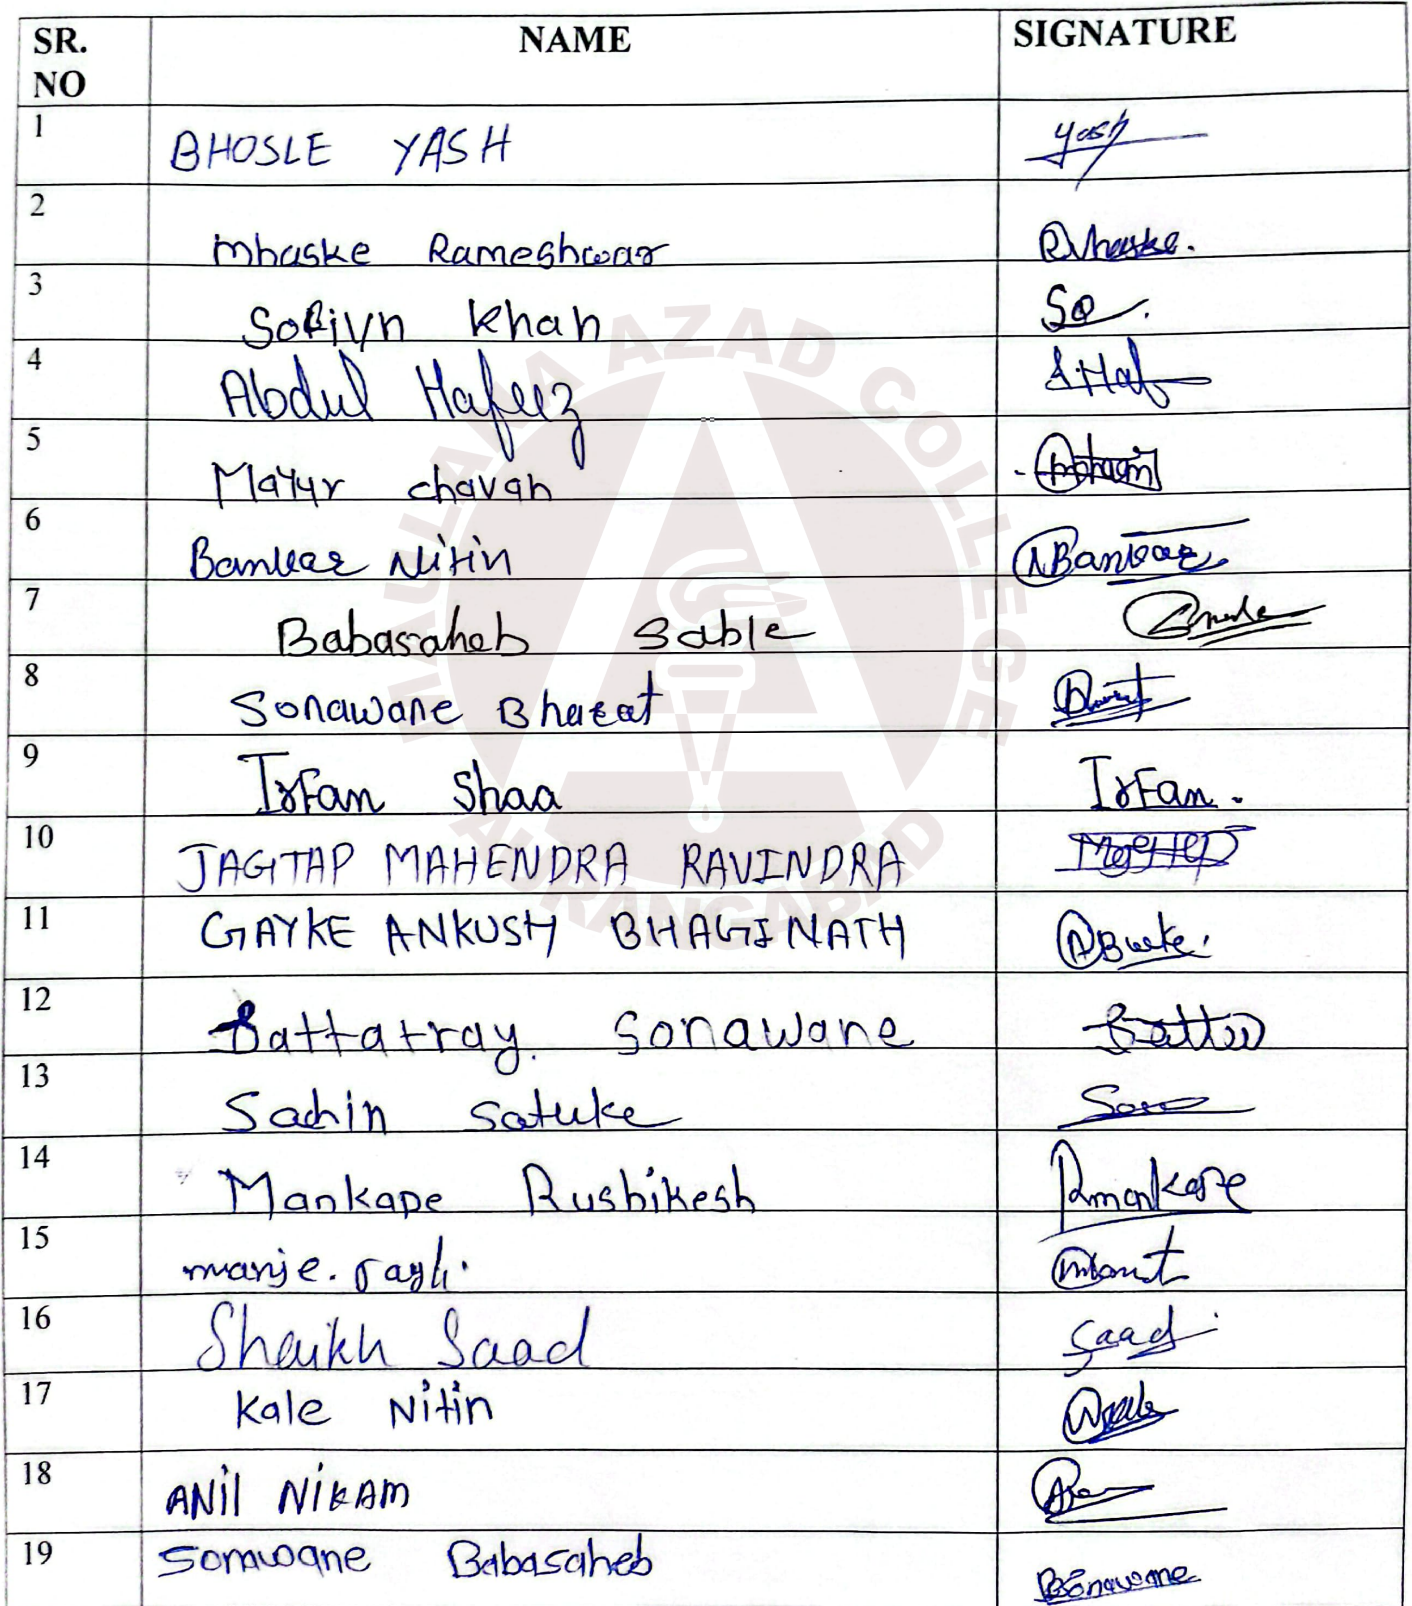 SR. NO NAME SIGNATURE
1 BHOSLE YASH Yash
2 Mhaske Rameshwar RMhaske.
3 Sofiyn Khan
4 Abdul Hafeez A.Haf
5 Mayur chavan
6 Bankar Nitin NBankar
7 Babasaheb Sable
8 Sonawane Bharat Bharat
9 Irfan Shaa Irfan.
10 JAGTAP MAHENDRA RAVINDRA
11 GAYKE ANKUSH BHAGINATH
12 Dattatray. Sonawane
13 Sachin Satuke
14 Mankape Rushikesh Rmankape
15 manje.
16 Shaikh Saad Saad
17 Kale Nitin
18 ANil NiKAM
19 Sonawane Babasaheb BSonawane
MAULANA AZAD COLLEGE
AURANGABAD